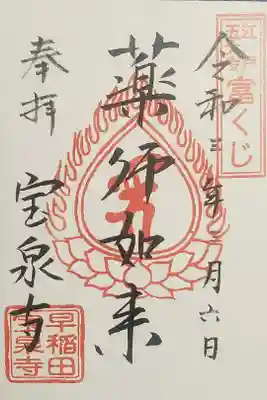 令和三年三月六日
薬師如来
奉拝
宝泉寺
富くじ
早稲田
宝泉寺